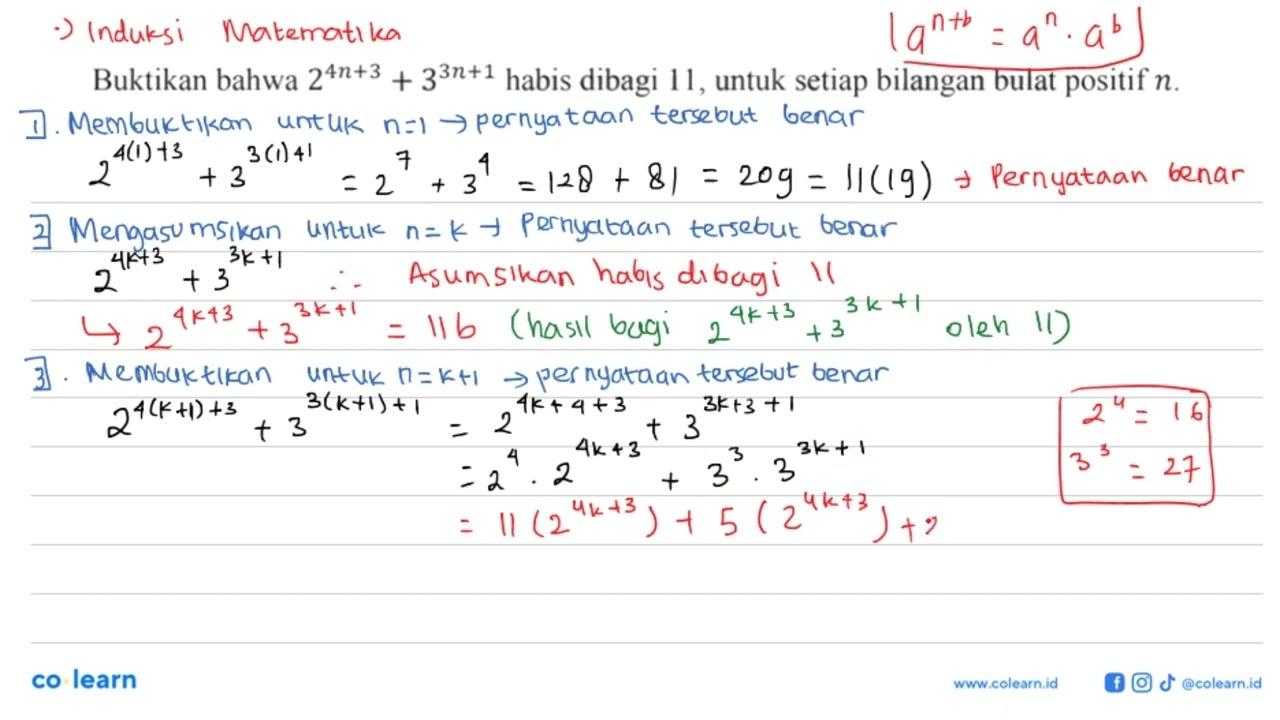 ·) Induksi Matematika
[a^{n+b} = a^n · a^b]
Buktikan bahwa 2^{4n+3} + 3^{3n+1} habis dibagi 11, untuk setiap bilangan bulat positif n.
1. Membuktikan untuk n=1 → pernyataan tersebut benar
2^{4(1)+3} + 3^{3(1)+1} = 2^7 + 3^4 = 128 + 81 = 209 = 11(19) → Pernyataan benar
2 Mengasumsikan untuk n=k → Pernyataan tersebut benar
2^{4k+3} + 3^{3k+1} ∴ Asumsikan habis dibagi 11
↳ 2^{4k+3} + 3^{3k+1} = 11b (hasil bagi 2^{4k+3} + 3^{3k+1} oleh 11)
3. Membuktikan untuk n=k+1 → pernyataan tersebut benar
2^{4(k+1)+3} + 3^{3(k+1)+1} = 2^{4k+4+3} + 3^{3k+3+1}
2^4 = 16
= 2^4 · 2^{4k+3} + 3^3 · 3^{3k+1}
3^3 = 27
= 11(2^{4k+3}) + 5(2^{4k+3}) +
co·learn
www.colearn.id
@colearn.id